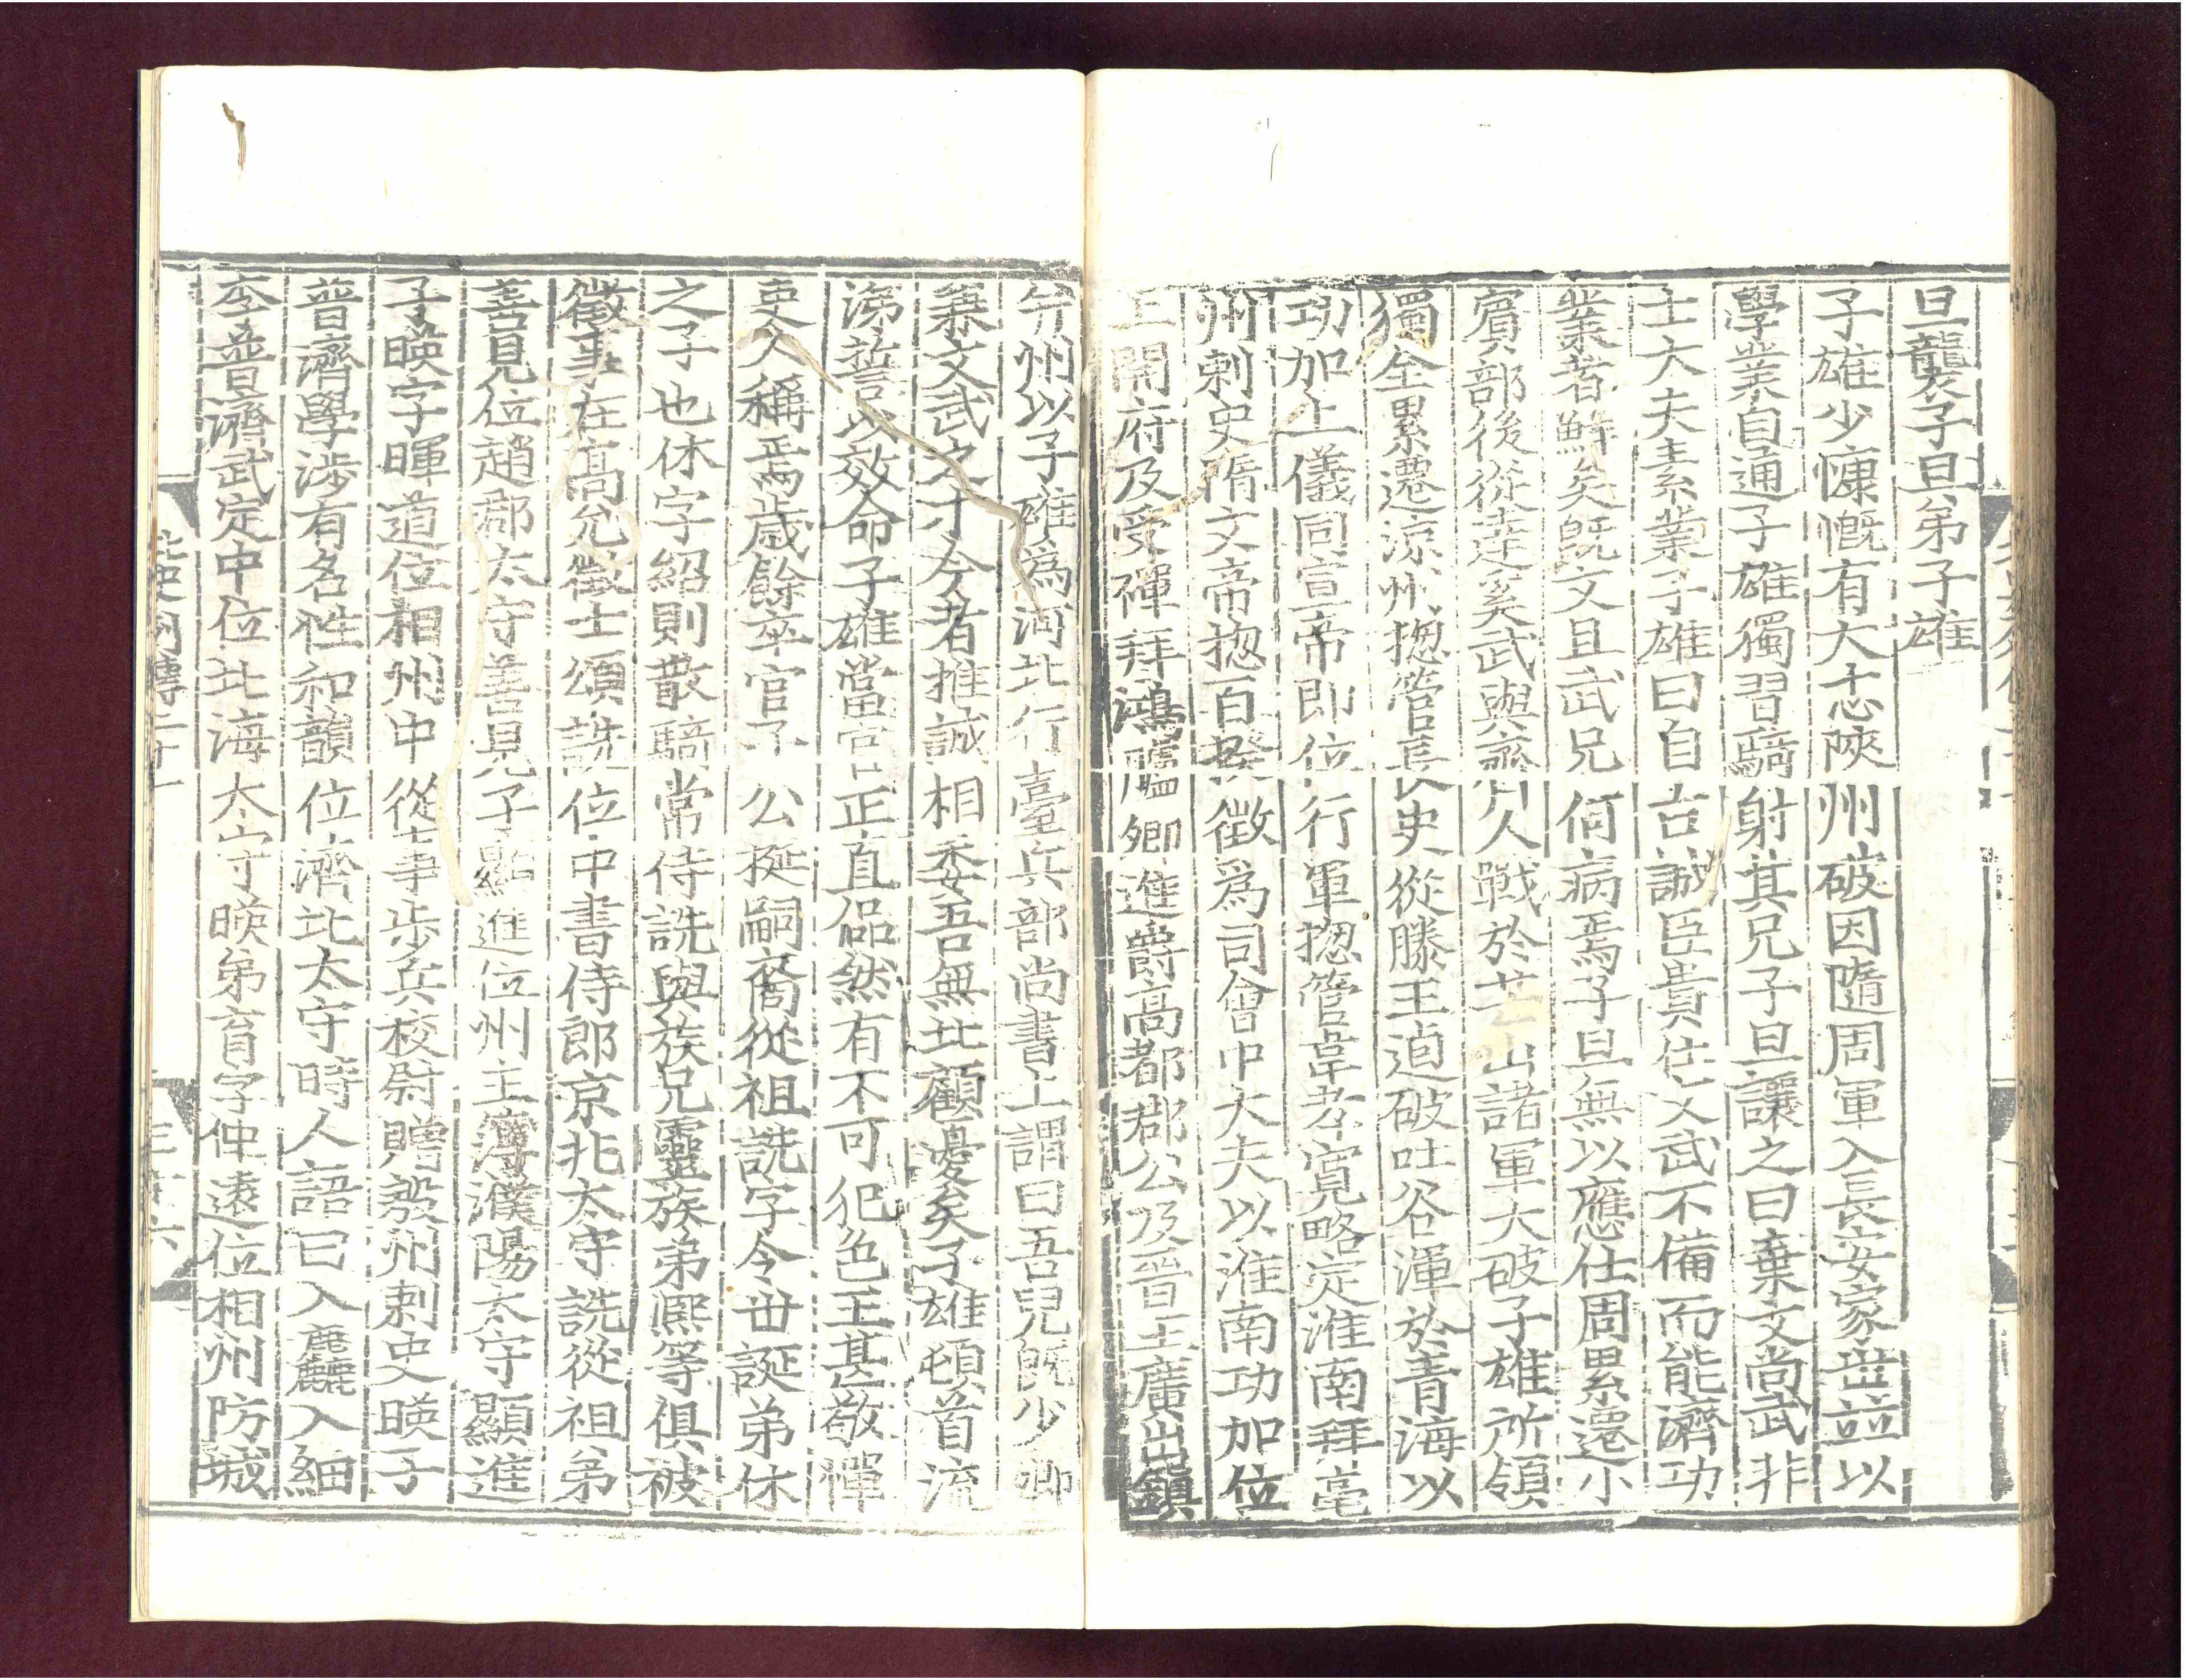 旦襲子旦弟子雄
子雄少慷慨有大志陝州破因隨周軍入長安家世並以
學業自通子雄獨習騎射其兄子旦讓之曰棄文尚武非
士大夫素業子雄曰自古誠臣貴仕文武不備而能濟功
業者鮮矣旣文且武兄何病焉子旦無以應仕周累遷小
賓部後從達奚武與齊人戰於芒山諸軍大破子雄所領
獨全累遷涼州揔管長史從滕王逌破吐谷渾於青海以
功加上儀同宣帝即位行軍揔管韋孝寬略定淮南拜亳
州刺史隋文帝揔百揆徵爲司會中大夫以淮南功加位
上開府及受禪拜鴻臚卿進爵高都郡公及晉王廣出鎮
幷州以子雄爲河北行臺兵部尚書上謂曰吾兒旣少卿
兼文武之才今者推誠相委吾無北顧憂矣子雄頓首流
涕誓以效命子雄當官正直侃然有不可犯色王甚敬憚
吏人稱焉歲餘卒官子公挻嗣裔從祖詵字令世誕弟休
之子也休字紹則散騎常侍詵與族兄靈族弟熙等俱被
徵事在高允徵士頌詵位中書侍郎京兆太守詵從祖弟
善見位趙郡太守善見子顯進位州主簿濮陽太守顯進
子暎字暉道位相州中從事步兵校尉贈殷州刺史暎子
普濟學涉有名性和韻位濟北太守時人語曰入麤入細
李普濟武定中位北海太守暎弟育字仲遠位相州防城
北史列傳二十一